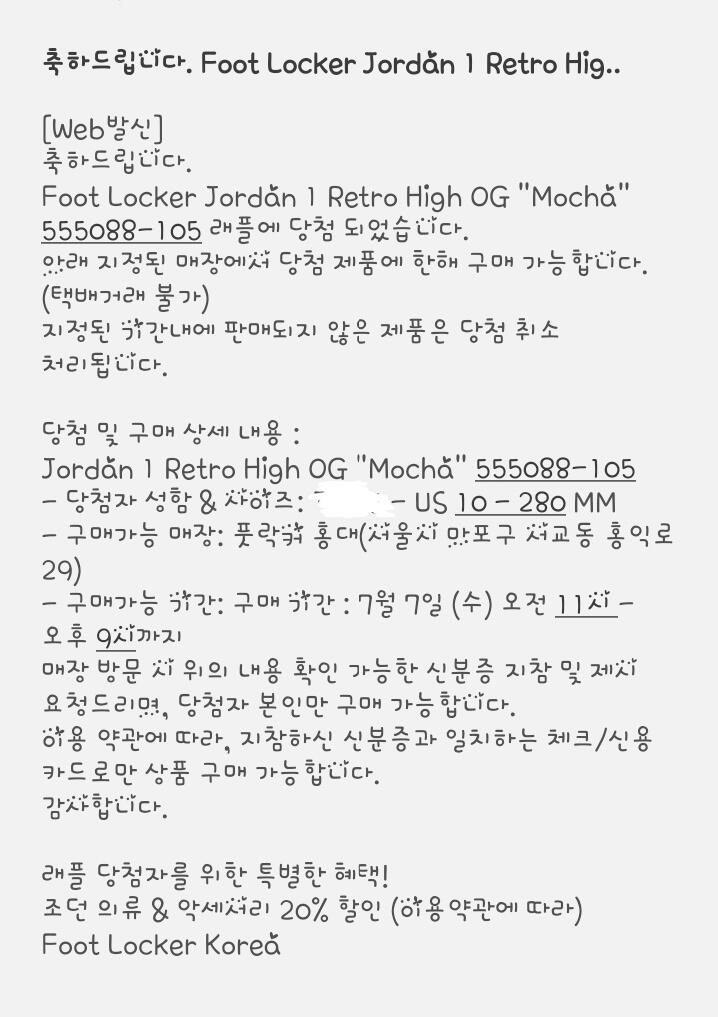 축하드립니다. Foot Locker Jordan 1 Retro Hig..
[Web발신]
축하드립니다.
Foot Locker Jordan 1 Retro High OG "Mocha"
555088-105 래플에 당첨 되었습니다.
아래 지정된 매장에서 당첨 제품에 한해 구매 가능합니다.
(택배거래 불가)
지정된 시간내에 판매되지 않은 제품은 당첨 취소
처리됩니다.
당첨 및 구매 상세 내용 :
Jordan 1 Retro High OG "Mocha" 555088-105
- 당첨자 성함 & 사이즈: - US 10 - 280 MM
- 구매가능 매장: 풋락커 홍대(서울시 마포구 서교동 홍익로
29)
- 구매가능 시간: 구매 시간 : 7월 7일 (수) 오전 11시 -
오후 9시까지
매장 방문 시 위의 내용 확인 가능한 신분증 지참 및 제시
요청드리며, 당첨자 본인만 구매 가능합니다.
이용 약관에 따라, 지참하신 신분증과 일치하는 체크/신용
카드로만 상품 구매 가능합니다.
감사합니다.
래플 당첨자를 위한 특별한 혜택!
조던 의류 & 악세서리 20% 할인 (이용약관에 따라)
Foot Locker Korea